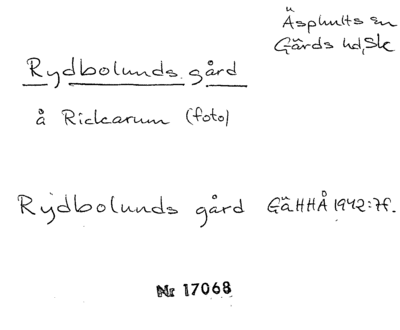 Äsphults sn
Gärds hd, Sk
Rydbolunds gård
å Rickarum (foto)
Rydbolunds gård GäHHÅ 1942:7f.
Nr 17068